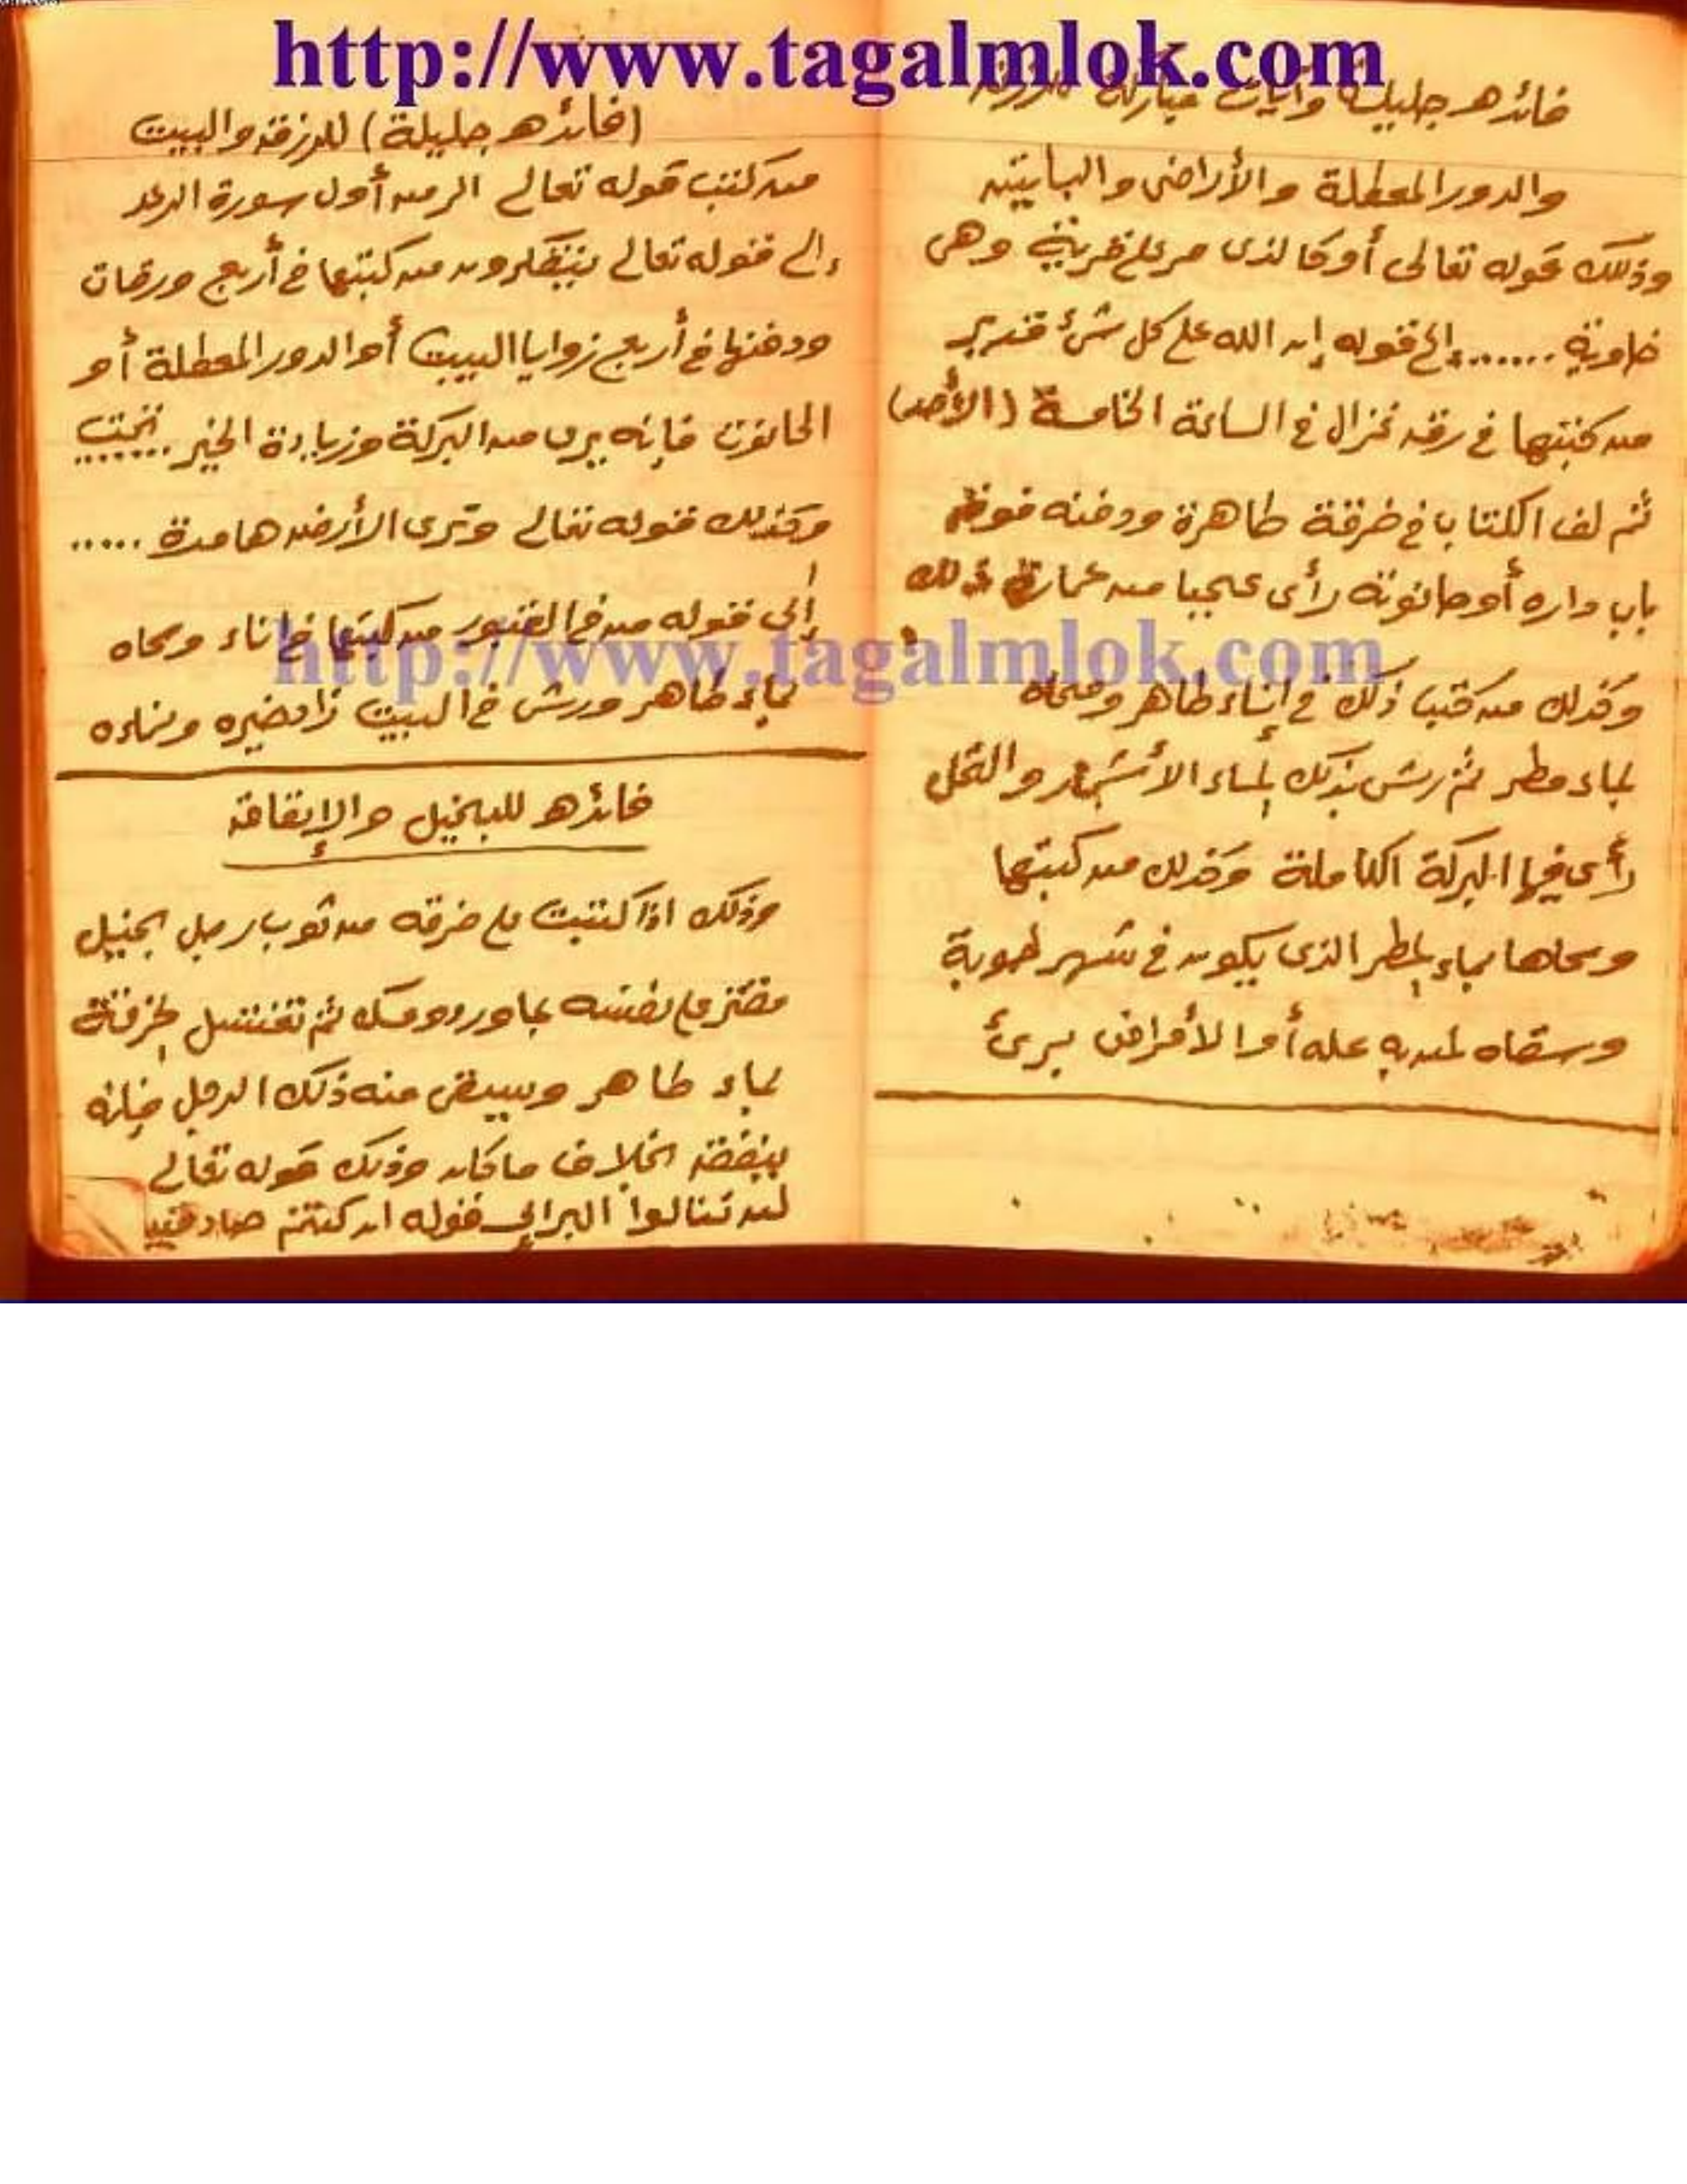 http://www.tagalmlok.com
فائدهـ جليلة وآيات مباركة للرزق
والدور المعطلة والأراضى والبساتين
وذلك قوله تعالى أو كالذى مر على قرية وهى
خاوية ....... إلى قوله إن الله على كل شئ قدير
من كتبها فى رق غزال فى الساعة الخامسة (الأحد)
ثم لف الكتاب فى خرقة طاهرة ودفنه فوق
باب داره أو حانوته رأى عجبا من عمارة ذلك
وكذلك من كتب ذلك فى إناء طاهر ومحاه
بماء مطر ثم رش بذلك الماء الأشجار والنخل
رأى فيها البركة الكاملة وكذلك من كتبها
ومحاها بماء المطر الذى يكون فى شهر طوبة
وسقاه لمن به عله أو الأمراض برئ
(فائدهـ جليلة) للرزق والبيت
من كتب قوله تعالى المر من أول سورة الرعد
إلى قوله تعالى يتفكرون من كتبها فى أربع ورقات
ودفنها فى أربع زوايا البيت أو الدور المعطلة أو
الحانوت فإنه يرى من البركة وزيادة الخير .......
وكذلك قوله تعالى وترى الأرض هامدة .....
إلى قوله من فى القبور من كتبها فى اناء ومحاه
بماء طاهر ورش فى البيت زاد خيره ونماءه
http://www.tagalmlok.com
فائدهـ للبخيل والإنفاق
وذلك اذا كتبت على خرقه من ثوب رجل بخيل
مقتر على نفسه بماورد ومسك ثم تغسل الخرقة
بماء طاهر ويسقى منه ذلك الرجل فإنه
ينفق بخلاف ما كان وذلك قوله تعالى
لن تنالوا البر إلى قوله ان كنتم صادقين